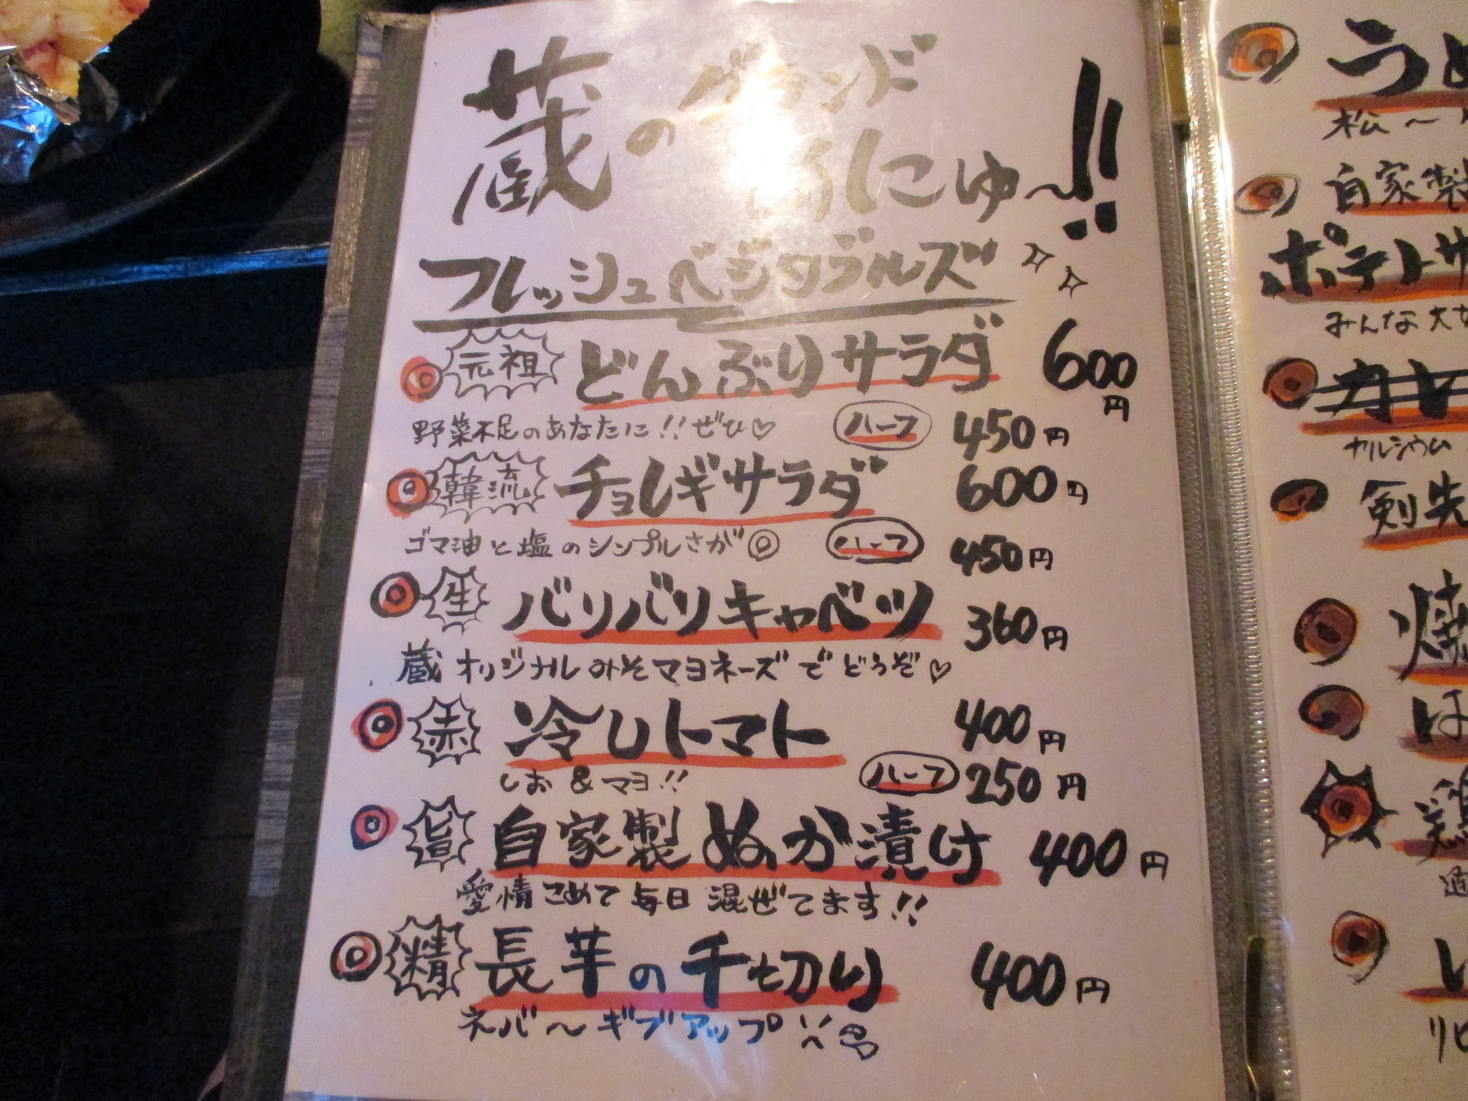 蔵のグランドめにゅ〜!!
フレッシュベジタブルズ
元祖 どんぶりサラダ 600円
野菜不足のあなたに!!ぜひ♡ ハーフ 450円
韓流 チョレギサラダ 600円
ゴマ油と塩のシンプルさが◎ ハーフ 450円
生 バリバリキャベツ 360円
蔵オリジナルみそマヨネーズでどうぞ♡
赤 冷しトマト 400円
しお&マヨ!! ハーフ 250円
旨 自家製ぬか漬け 400円
愛情こめて毎日混ぜてます!!
精 長芋の千切り 400円
ネバ〜ギブアップ
うめ
松〜
自家製
ポテトサ
みんな大
カレ
カルシウム
剣先
焼
は
鶏
リピ